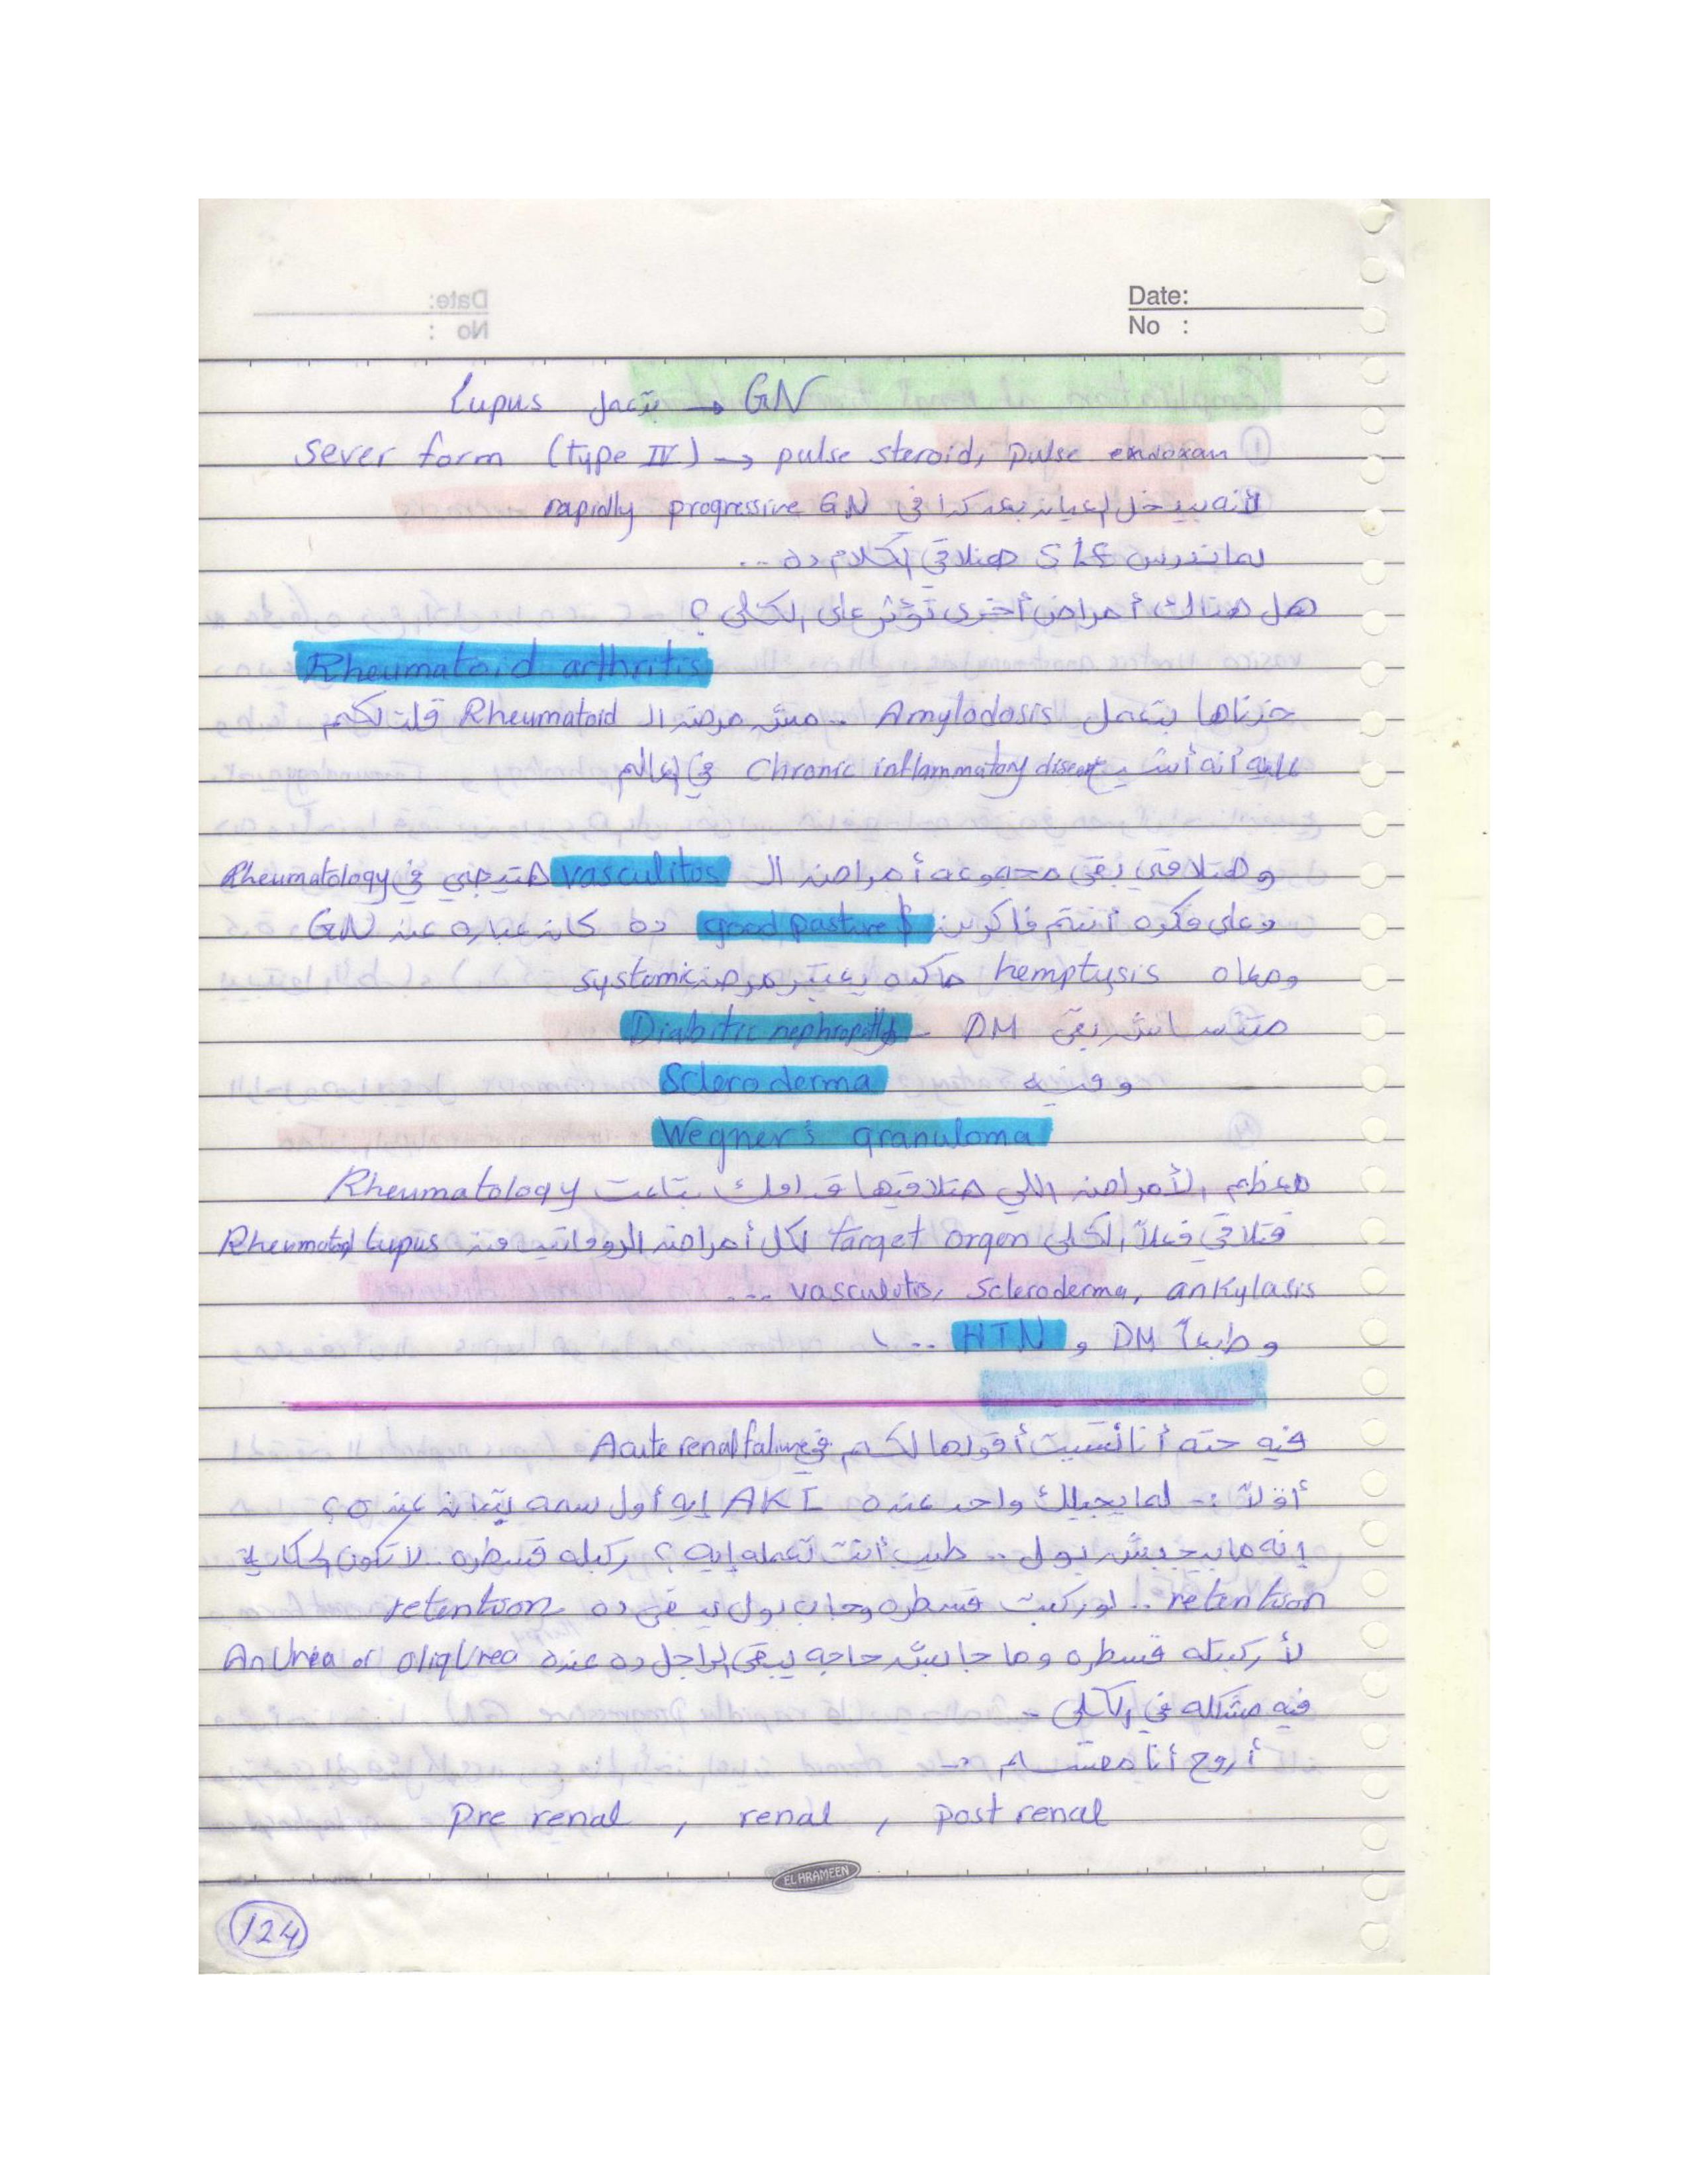 Date:
No :
Lupus بتعمل → GN
Sever form (type IV) → pulse steroid, pulse endoxan
لأنه بيدخل العيان بعد كدا في rapidly progressive GN
لما ندرس SLE هنلاقي الكلام ده ...
هل هنالك أمراض أخرى تؤثر على الكلى ؟
Rheumatoid arthritis
خدناها بتعمل Amylodosis .. مش مرض الـ Rheumatoid قلت لكم
عليه أنه أشهر Chronic inflammatory disease في العالم
وهتلاقي بقى مجموعه أمراض الـ vasculitis هتيجي في Rheumatology
وعلى فكره أنتم فاكرين good pasture ده كان عباره عن GN
ومعاه hemptysis ماكده يعتبر مرض systemic
متنساش بقى DM - Diabitic nephropathy
وفيه Scleroderma
Wegner's granuloma
معظم الأمراض اللي هتلاقيها قدامك بتاعت Rheumatology
فتلاقي فعلاً الكلى target orgen لكل أمراض الروماتيزم Rheumatoid, Lupus
vasculitis, Scleroderma, ankylasis ...
وطبعاً DM و HTN ...
فيه حته أنا نسيت أقولها لكم في Acute renal falure
أولاً :- لما يجيلك واحد عنده AKI إيه أول سمه بتبان عنده ؟
إنه مابيجيبش بول .. طيب أنت تعمله إيه ؟ ركبله قسطره لا تكون الحكاية
retention .. لو ركبت قسطره وجاب بول يبقى ده retention
لأ ركبتله قسطره وما جابش حاجه يبقى الراجل ده عنده AnUrea or oligUrea
فيه مشكله في الكلى -
أروح أنا مقسم :-
Pre renal , renal , post renal
EL HRAMEEN
124